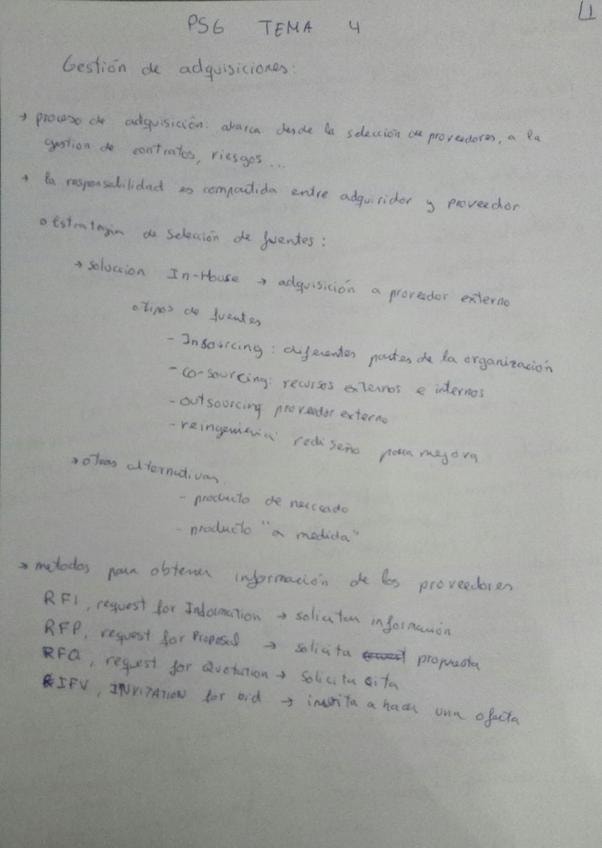 1
PSG TEMA 4
Gestión de adquisiciones:
→ proceso de adquisición: abarca desde la selección de proveedores, a la
gestion de contratos, riesgos...
→ la responsabilidad es compartida entre adquiridor y proveedor
o Estrategia de selección de fuentes:
→ solucion In-House → adquisición a proveedor externo
o Tipos de fuentes
- Insourcing: diferentes partes de la organización
- co-sourcing: recursos externos e internos
- outsourcing proveedor externo
- reingenieria: rediseño para mejora
→ otras alternativas
- producto de mercado
- producto "a medida"
→ metodos para obtener información de los proveedores
RFI, request for Information → solicitan información
RFP, request for Proposal → solicita propuesta
RFQ, request for Quotation → solicita cita
IFV, INVITATION for bid → invita a hacer una oferta